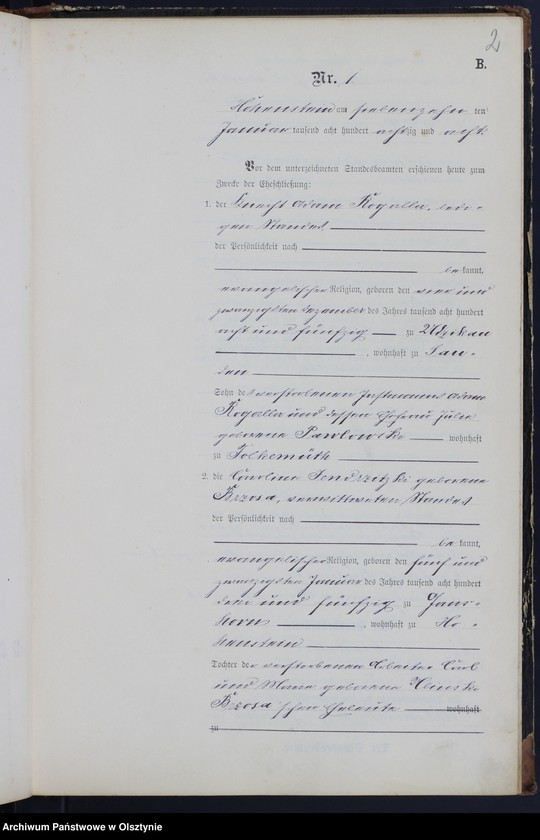 2
B.
Nr. 1
Hohenstein am siebenzehn ten
Januar tausend acht hundert achtzig und acht.
Vor dem unterzeichneten Standesbeamten erschienen heute zum
Zwecke der Eheschließung:
1. der Knecht Adam Rogalla, ledi-
gen Standes
der Persönlichkeit nach
bekannt,
evangelischer Religion, geboren den vier und
zwanzigsten Dezember des Jahres tausend acht hundert
acht und fünfzig zu
, wohnhaft zu Tan-
den
Sohn des verstorbenen Instmanns Adam
Rogalla und dessen Ehefrau Julie
geborene Pawlowski wohnhaft
zu Tolkemüth
2. die Caroline Jendrzitzki geborene
Brzosa, verwittweten Standes
der Persönlichkeit nach
bekannt,
evangelischer Religion, geboren den fünf und
zwanzigsten Januar des Jahres tausend acht hundert
drei und fünfzig zu Gans-
horn , wohnhaft zu Ho-
henstein
Tochter der verstorbenen Arbeiter Carl
und geborene
Brzosa'schen Eheleute wohnhaft
zu
Archiwum Państwowe w Olsztynie